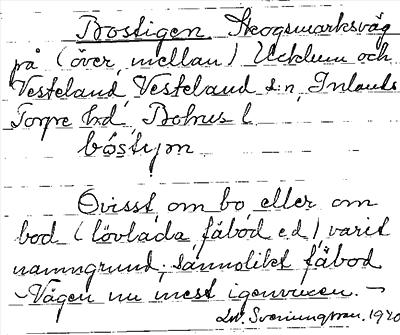 Bostigen. Skogsmarksväg
på (över, mellan) Ucklum och
Vesteland, Vesteland s:n, Inlands
Torpe hd, Bohus l.
bóstıỵn
Ovisst, om bo, eller om
bod (lövlada, fäbod e.d.) varit
namngrund; sannolikt fäbod
- Vägen nu mest igenvuxen. -
Sveningsson. 1920